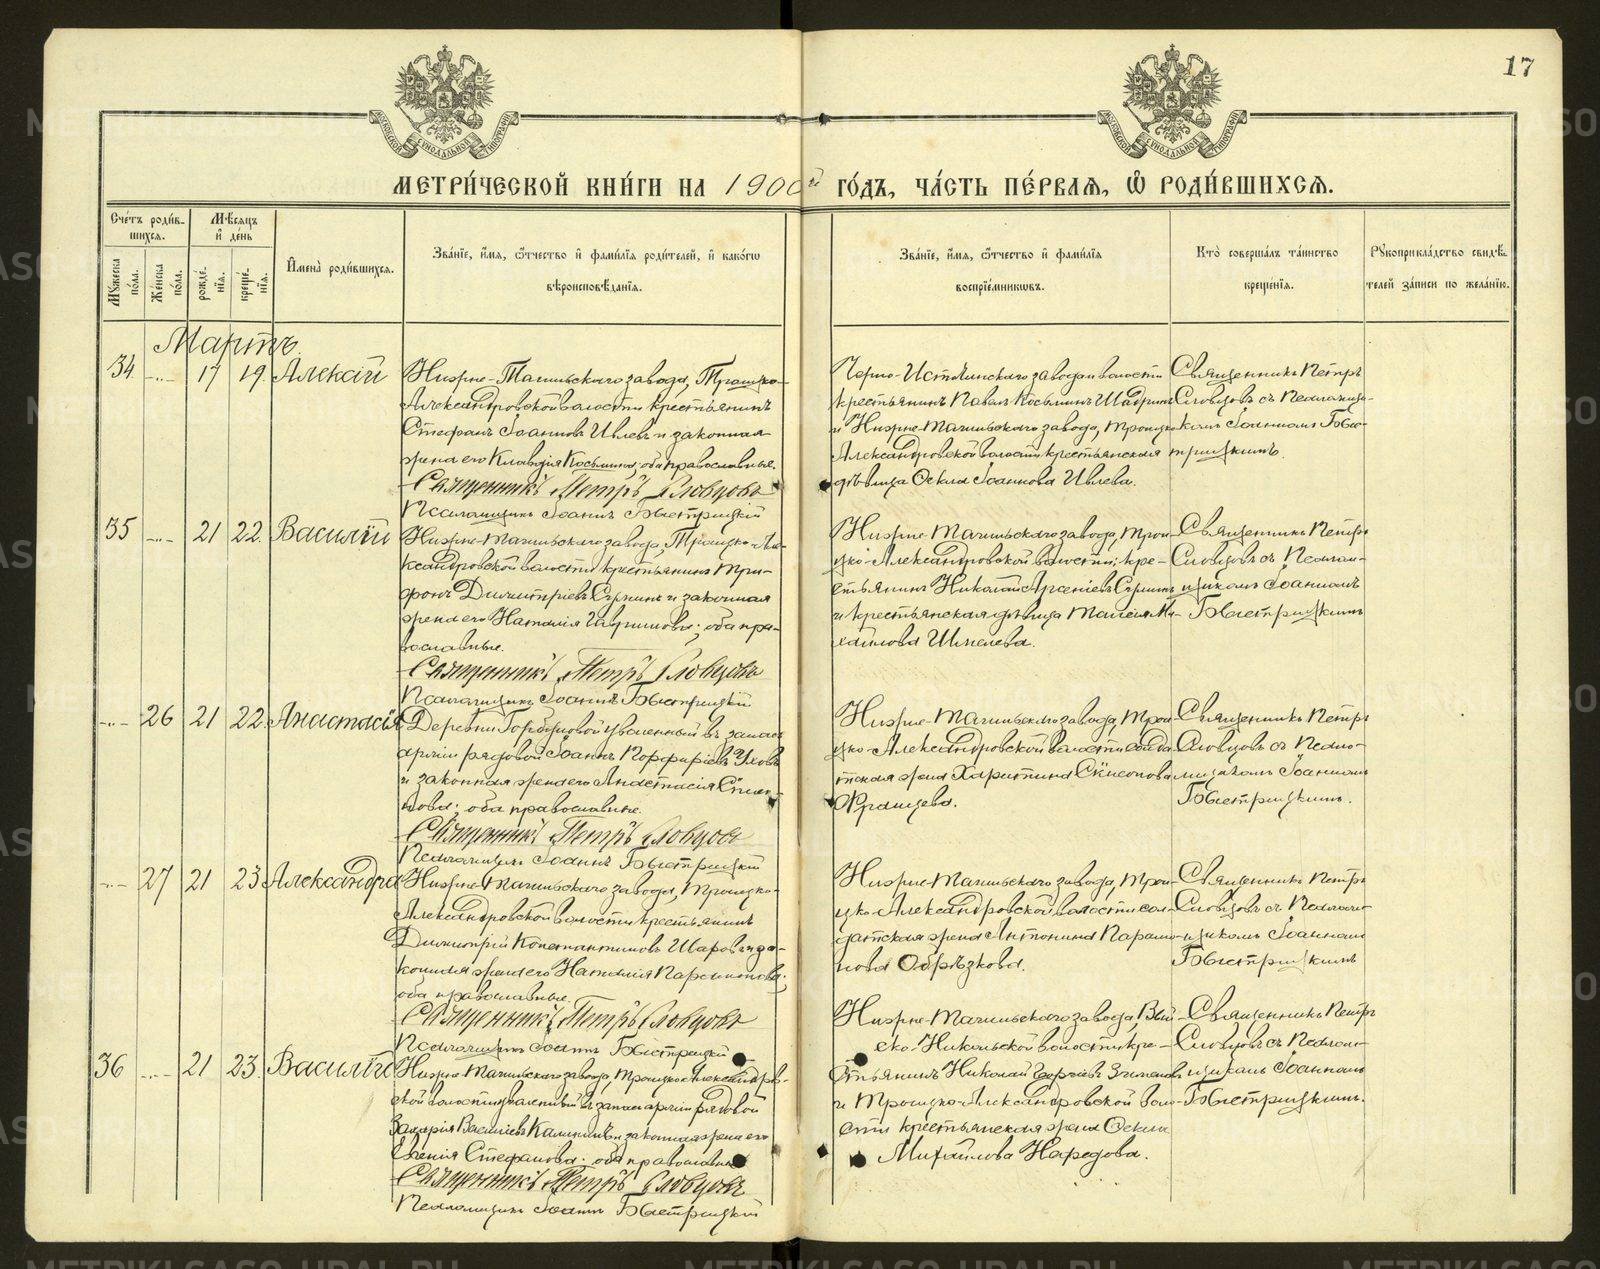 17
МОСКОВСКОЙ СѴНОДАЛЬНОЙ ТИПОГРАФІИ
МОСКОВСКОЙ СѴНОДАЛЬНОЙ ТИПОГРАФІИ
МЕТРИ́ЧЕСКОЙ КНИ́ГИ НА 1900й ГО́ДЪ, ЧА́СТЬ ПЕ́РВАѦ, Ѡ҆ РОДИ́ВШИХСѦ.
Сче́тъ роди́в-
шихсѧ.
Мꙋжеска по́ла.
Же́нска по́ла.
Мѣ́сѧцъ и҆ де́нь
рожде́нїѧ.
креще́нїѧ.
И҆мена̀ роди́вшихсѧ.
Зва́нїе, и҆́мѧ, ѻ҆́тчество и҆ фами́лїѧ роди́телей, и҆ како́гѡ
вѣроисповѣ́данїѧ.
Зва́нїе, и҆́мѧ, ѻ҆́тчество и҆ фами́лїѧ
воспрїе́мникѡвъ.
Кто̀ соверша́лъ та́инство
креще́нїѧ.
Рꙋкоприкла́дство свидѣ́-
телей за́писи по жела́нїю.
Мартъ
34 -"- 17 19 Алексій
Нижне-Тагильскаго завода, Троицко-
Александровской волости крестьянинъ
Стефанъ Іоанновъ Ивлевъ и законная
жена его Клавдія Косьмина; оба православные.
Священникъ Петръ Словцовъ
Псаломщикъ Іоаннъ Быстрицкій
Черно-Источинскаго завода и волости
крестьянинъ Павелъ Косьминъ Шадринъ
и Нижне-Тагильскаго завода, Троицко-
Александровской волости крестьянская
дѣвица Оекла Іоаннова Ивлева.
Священникъ Петръ
Словцовъ съ Псаломщи-
комъ Іоанномъ Быс-
трицкимъ.
35 -"- 21 22 Василій
Нижне-Тагильскаго завода, Троицко-Але-
ксандровской волости крестьянинъ Три-
фонъ Димитріевъ и законная
жена его Наталія Гаврилова; оба пра-
вославные.
Священникъ Петръ Словцовъ
Псаломщикъ Іоаннъ Быстрицкій
Нижне-Тагильскаго завода, Трои-
цко-Александровской волости; кре-
стьянинъ Николай Арсеніевъ
и крестьянская дѣвица Таисія Ми-
хаилова Шмелева.
Священникъ Петръ
Словцовъ съ Псалом-
щикомъ Іоанномъ
Быстрицкимъ
-"- 26 21 22 Анастасія
Деревни Горбуновой уволенный въ запасъ
арміи рядовой Іоаннъ Порфирьевъ
и законная жена его Анастасія
оба православные.
Священникъ Петръ Словцовъ
Псаломщикъ Іоаннъ Быстрицкій
Нижне-Тагильскаго завода, Трои-
цко-Александровской волости солда-
тская жена Харитина
Священникъ Петръ
Словцовъ съ Псало-
мщикомъ Іоанномъ
Быстрицкимъ.
-"- 27 21 23 Александра
Нижне-Тагильскаго завода, Троицко-
Александровской волости крестьянинъ
Димитрій Константиновъ Шаровъ и за-
конная жена его Наталія Парамонова;
оба православные.
Священникъ Петръ Словцовъ
Псаломщикъ Іоаннъ Быстрицкій
Нижне-Тагильскаго завода, Трои-
цко-Александровской волости сол-
датская жена Антонина Парамо-
нова Обрѣзкова.
Священникъ Петръ
Словцовъ съ Псалом-
щикомъ Іоанномъ
Быстрицкимъ
36 -"- 21 23 Василій
Нижне-Тагильскаго завода, Троицко-Александров-
ской волости уволенный въ запасъ арміи рядовой
Захарія Василіевъ Калининъ и законная жена его
Евгенія Стефанова; оба православные
Священникъ Петръ Словцовъ
Псаломщикъ Іоаннъ Быстрицкій
Нижне-Тагильскаго завода, Вый-
ско-Никольской волости кре-
стьянинъ Николай
и Троицко-Александровской воло-
сти крестьянская жена Оекла
Михайлова
Священникъ Петръ
Словцовъ съ Псалом-
щикомъ Іоанномъ
Быстрицкимъ.